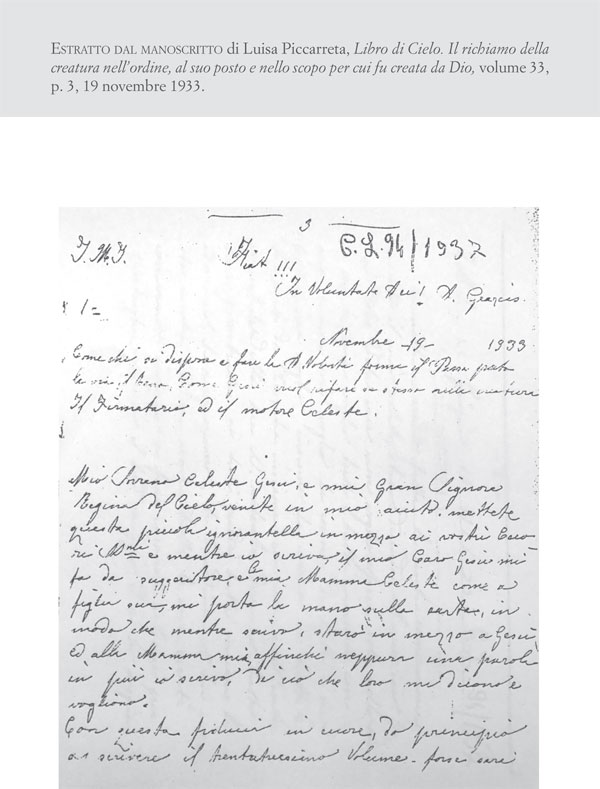 ESTRATTO DAL MANOSCRITTO di Luisa Piccarreta, Libro di Cielo. Il richiamo della
creatura nell'ordine, al suo posto e nello scopo per cui fu creata da Dio, volume 33,
p. 3, 19 novembre 1933.
3
J. M. J. Fiat!!! 1937
In Voluntate Dei! D. Gracias.
1=
Novembre -19- 1933
Come chi si dispone a fare la D. Volontà forma il
la via, Come Gesù vuol rifare se stesso nella creatura
Il Firmatario, ed il motore Celeste.
Mio Sovrano Celeste Gesù, e mia Gran Signora
Regina del Cielo, venite in mio aiuto. mettete
questa piccola ignorantella in mezzo ai vostri Cuo
ri e mentre io scrivo, il mio Caro Gesù mi
fa da suggeritore, e la mia Mamma Celeste come a
figlia sua, mi porta la mano sulla carta, in
modo che mentre scrivo, starò in mezzo a Gesù,
ed alla Mamma mia, affinchè neppure una parola
in più io scriva, di ciò che loro mi dicono e
vogliono.
Con questa fiducia in cuore, do principio
a scrivere il trentatreesimo Volume. forse sarà